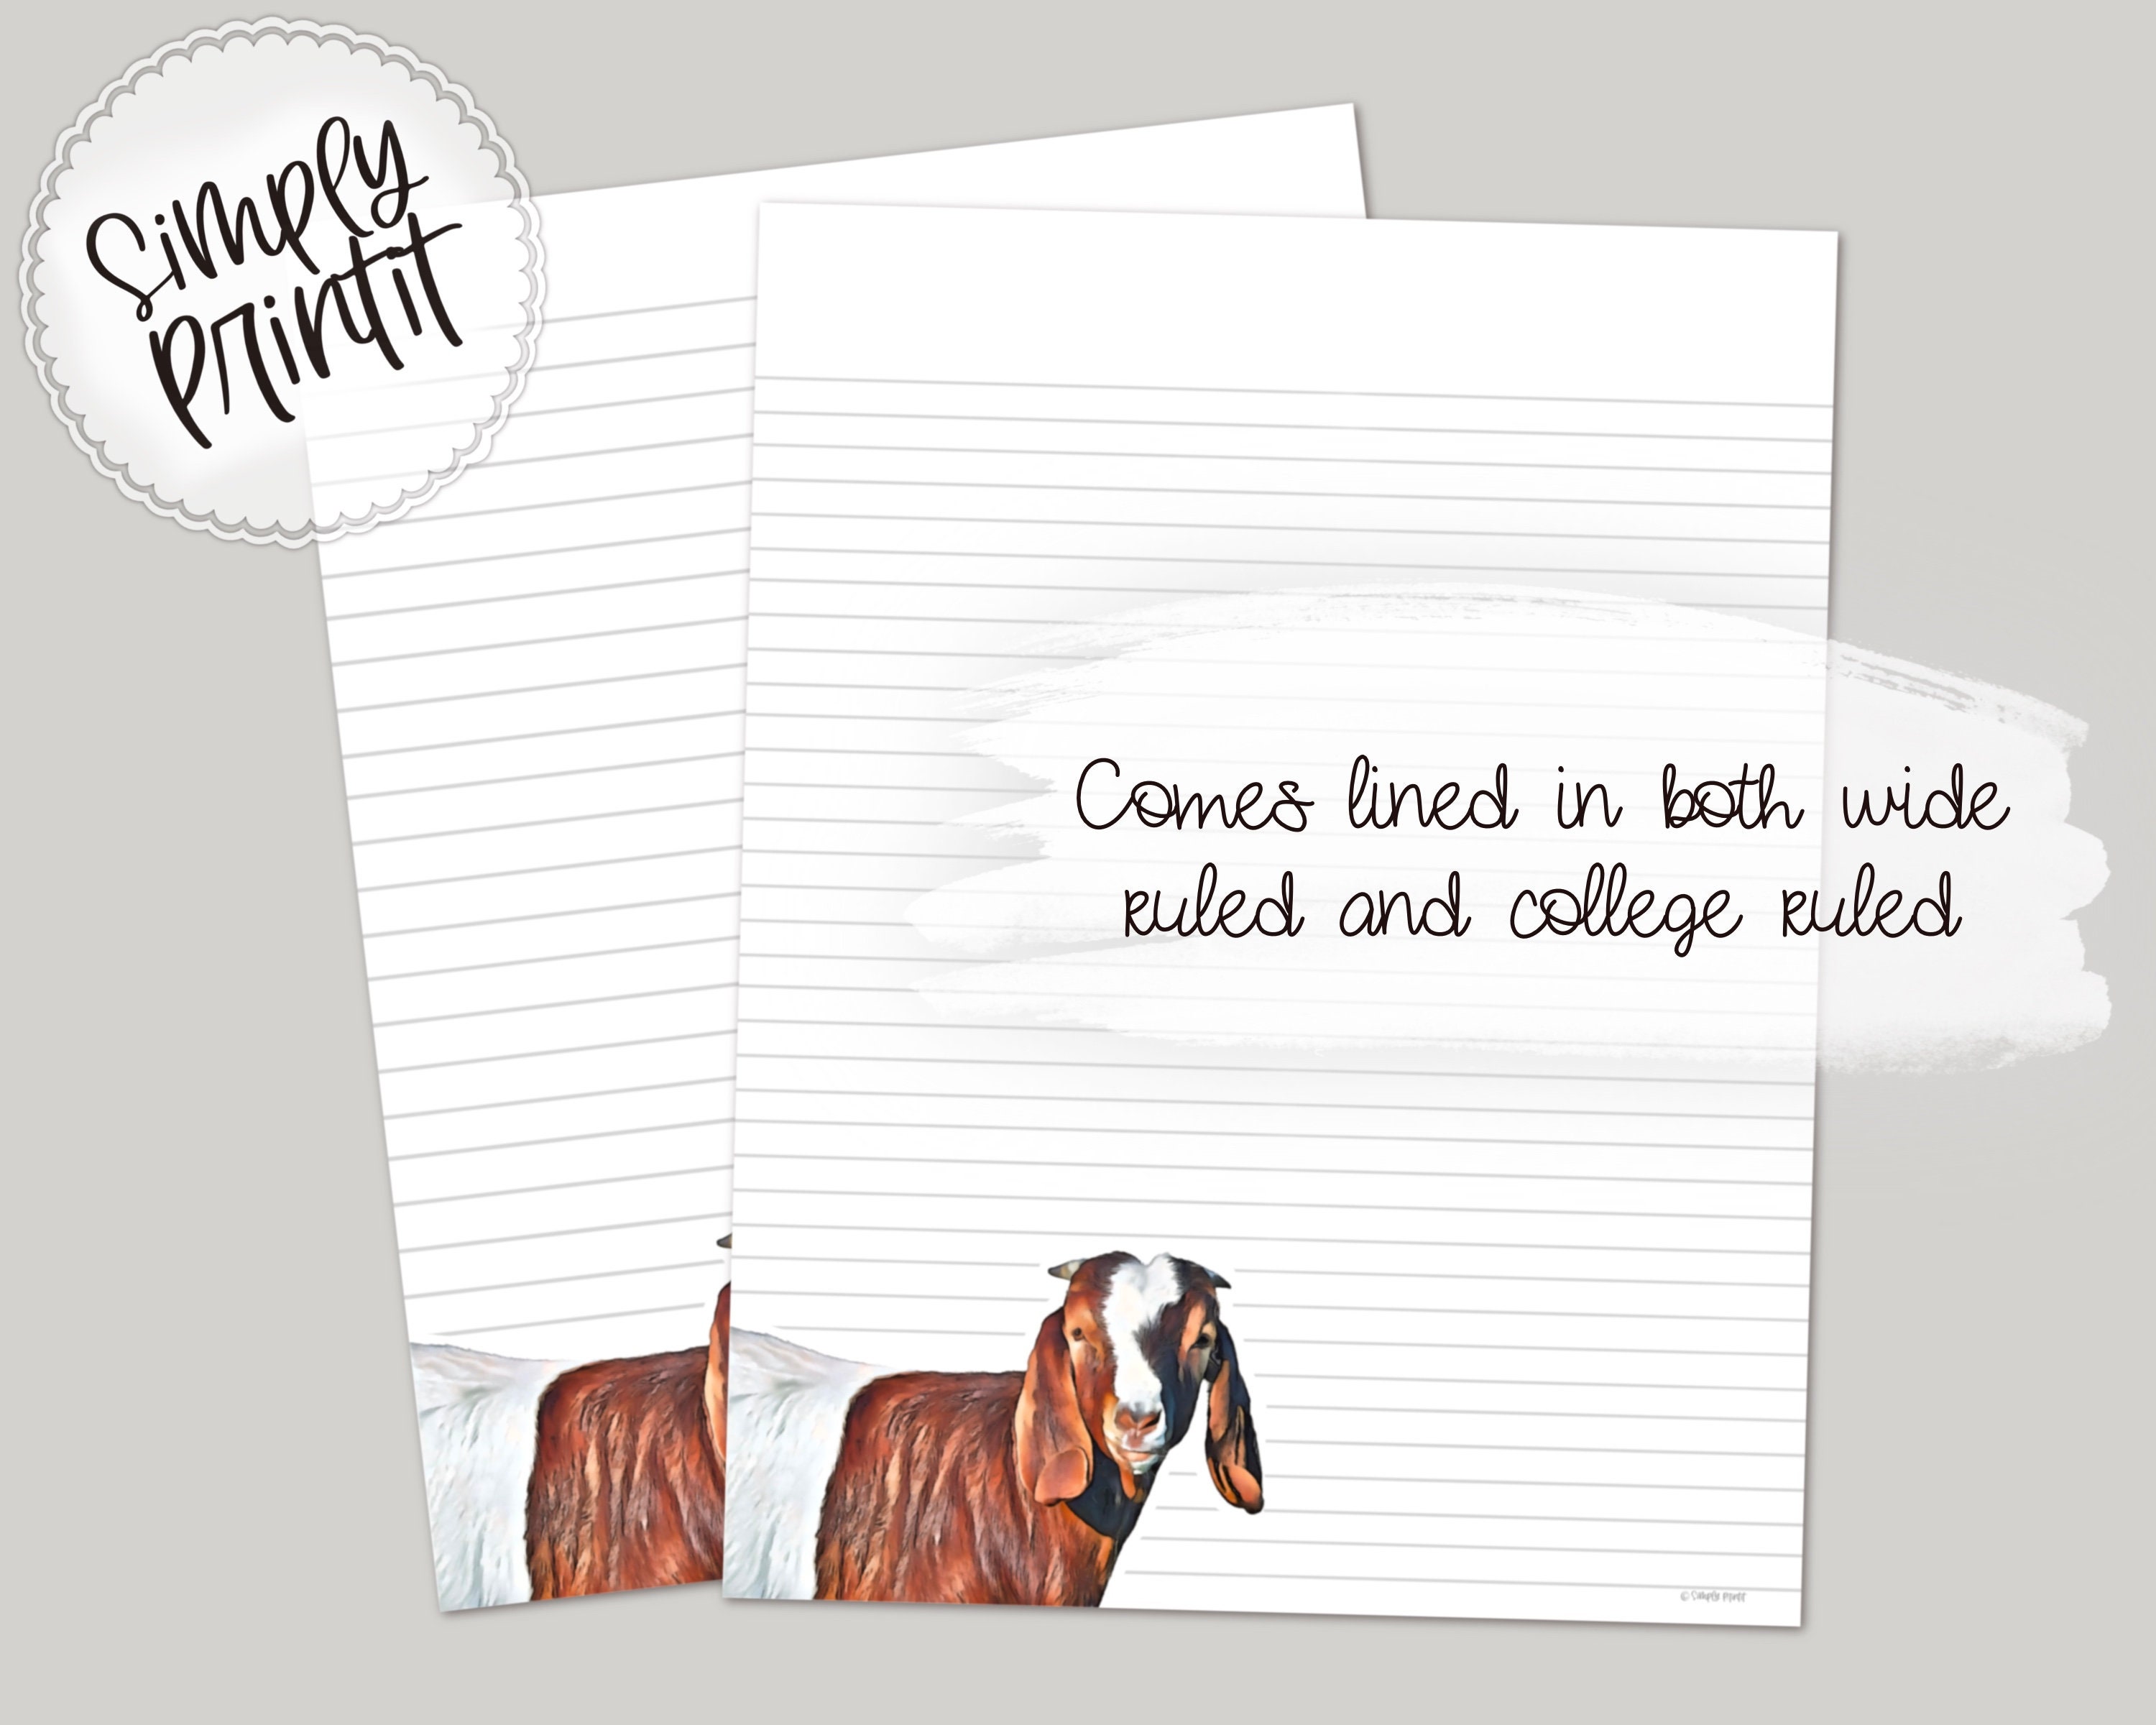 Simply
Printit
Comes lined in both wide
ruled and college ruled
© Simply Printit